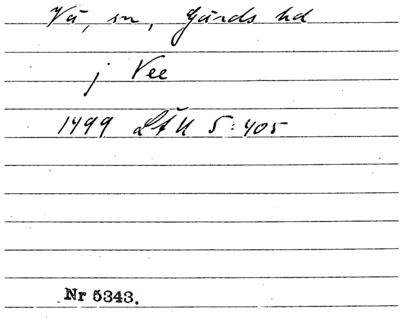 Vä, sn, Gärds hd
j Vee
1499 LÅU 5:405
Nr 5343.